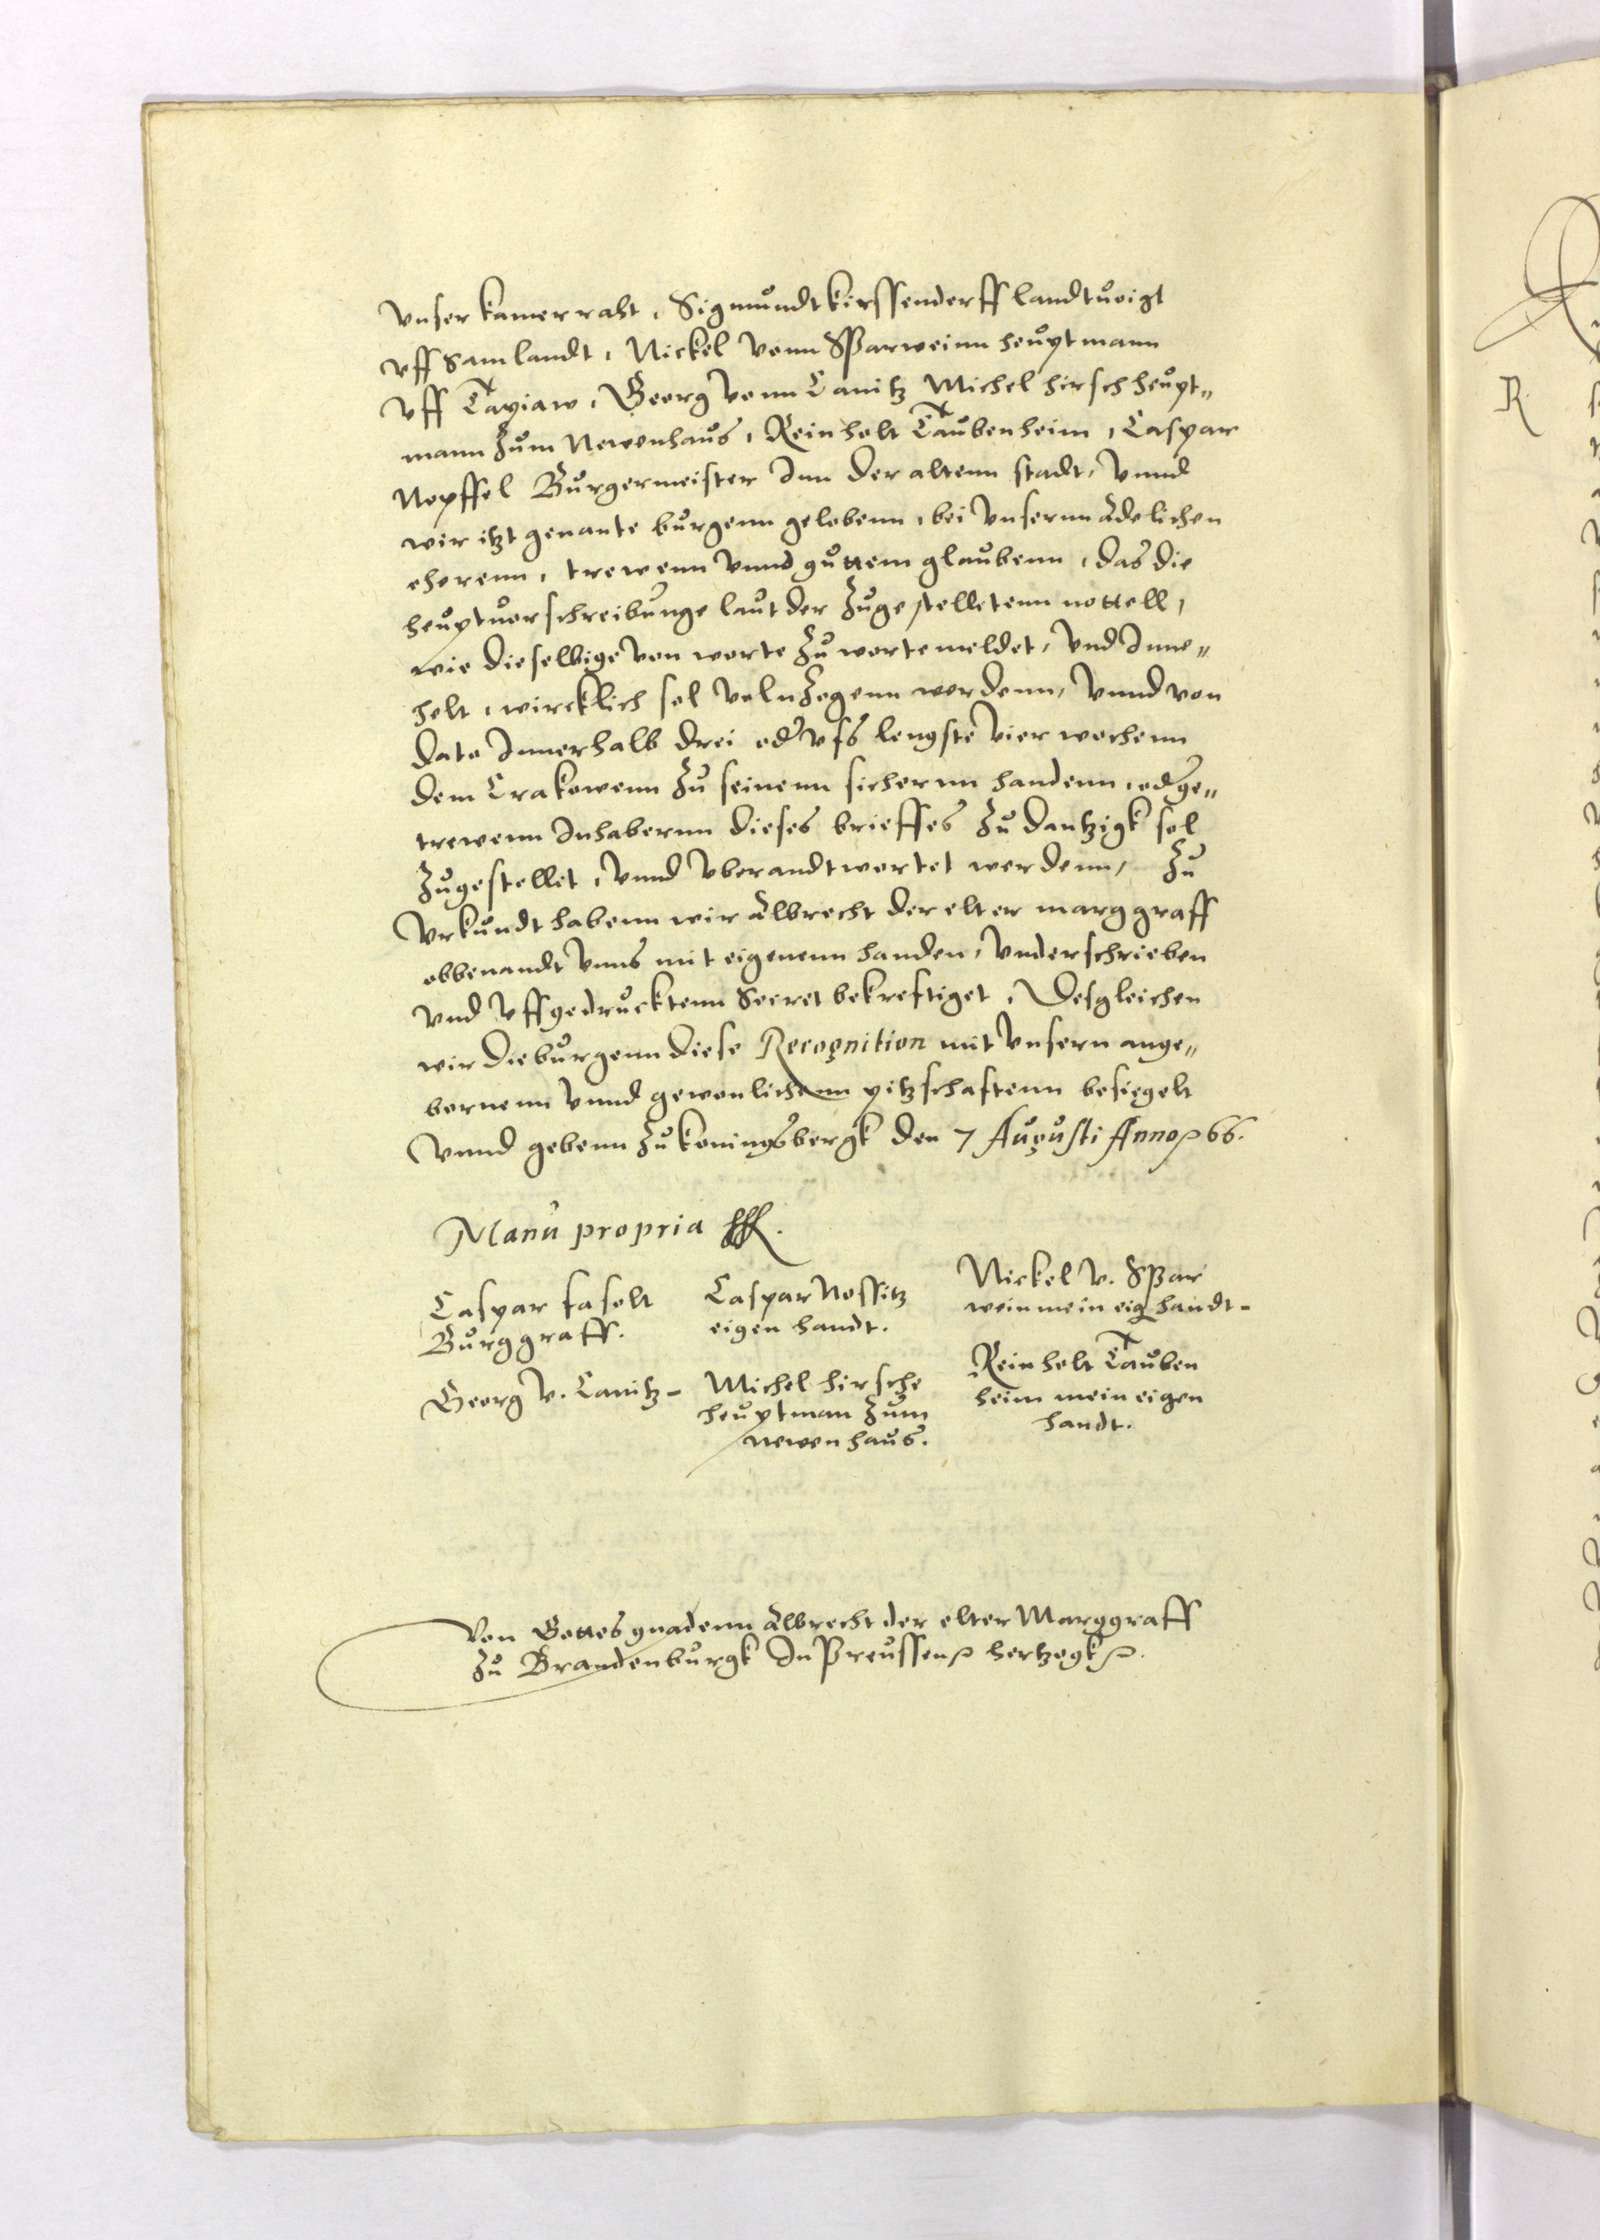 vnser kamerraht, Sigmundt kirssendorff landtuoigt
vff Samlandt, Nickel vonn Sparweinn heuptmann
vff Tapiaw, Georg vonn Canitz Michel hirsch heupt„
mann zum Newenhaus, Reinholt Taubenheim, Caspar
Nopffel Burgermeister Inn der altenn stadt, Vnnd
wir itzt genante burgenn gelobenn, bei vnsernn Adelichen
eherenn, trewenn vnnd guttem glaubenn, das die
heuptuorschreibunge laut der zugestelletenn nottell,
wie dieselbige von worte zu worte meldet, vnd Inne„
helt, wircklich sol volnzogenn werdenn, Vnnd von
dato Innerhalb drei od vfs lengste vier wochenn
dem Crakowenn zu seinenn sichernn handenn, od ge„
trewenn Inhabernn dieses brieffes zu dantzigk sol
zugestellet, vnnd vberandtwortet werdenn, Zu
Vrkundt habenn wir Albrecht der elter marggraff
obbenandt vnns mit eigenenn handen, vnderschrieben
vnd vffgedrucktenn Secret bekreftiget, Desgleichen
wir die burgenn diese Recognition mit vnsern ange„
bornenn vnnd gewonlichenn pitzschaftenn besiegelt
Vnnd gebenn zu koningsbergk den 7 Augusti Anno 66.
Manu propria
Caspar faselt
Burggraff.
Caspar Nossitz
eigen handt.
Nickel v. Spar
wein mein eig handt-
Georg v. Canitz-
Michel hirsche
heuptman zum
newenhaus.
Reinholt Tauben
heim mein eigen
handt.
Von Gottes gnadenn Albrecht der elter Marggraff
zu Brandenburgk In Preussen hertzogk
R